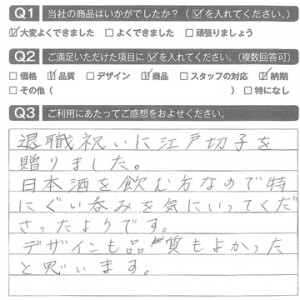 Q1 当社の商品はいかがでしたか？（☑を入れてください。）
☑大変よくできました □よくできました □頑張りましょう
Q2 ご満足いただけた項目に☑を入れてください。（複数回答可）
□価格 ☑品質 □デザイン ☑商品 □スタッフの対応 ☑納期
□その他（ ） □特になし
Q3 ご利用にあたってご感想をおよせください。
退職祝いに江戸切子を
贈りました。
日本酒を飲む方なので特
にぐい呑みを気にいってくだ
さったようです。
デザインも品質もよかった
と思います。